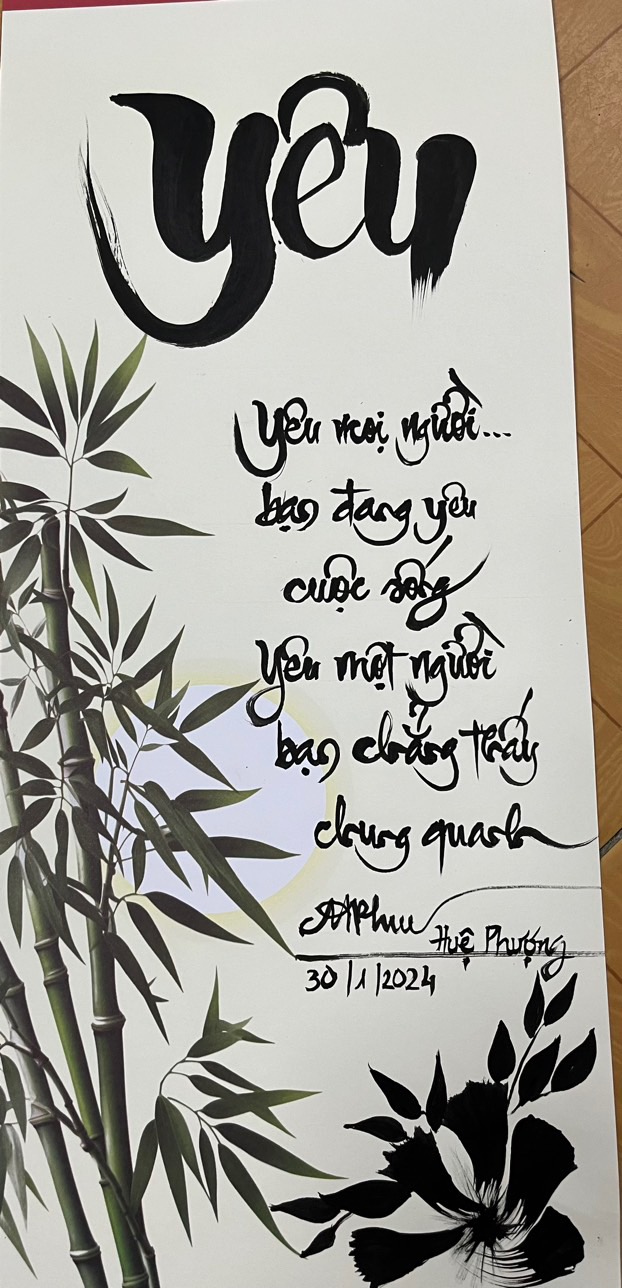 Yêu
Yêu mọi người...
bạn đang yêu
cuộc sống
Yêu một người
bạn chẳng thấy
chung quanh
Huệ Phượng
30/1/2024